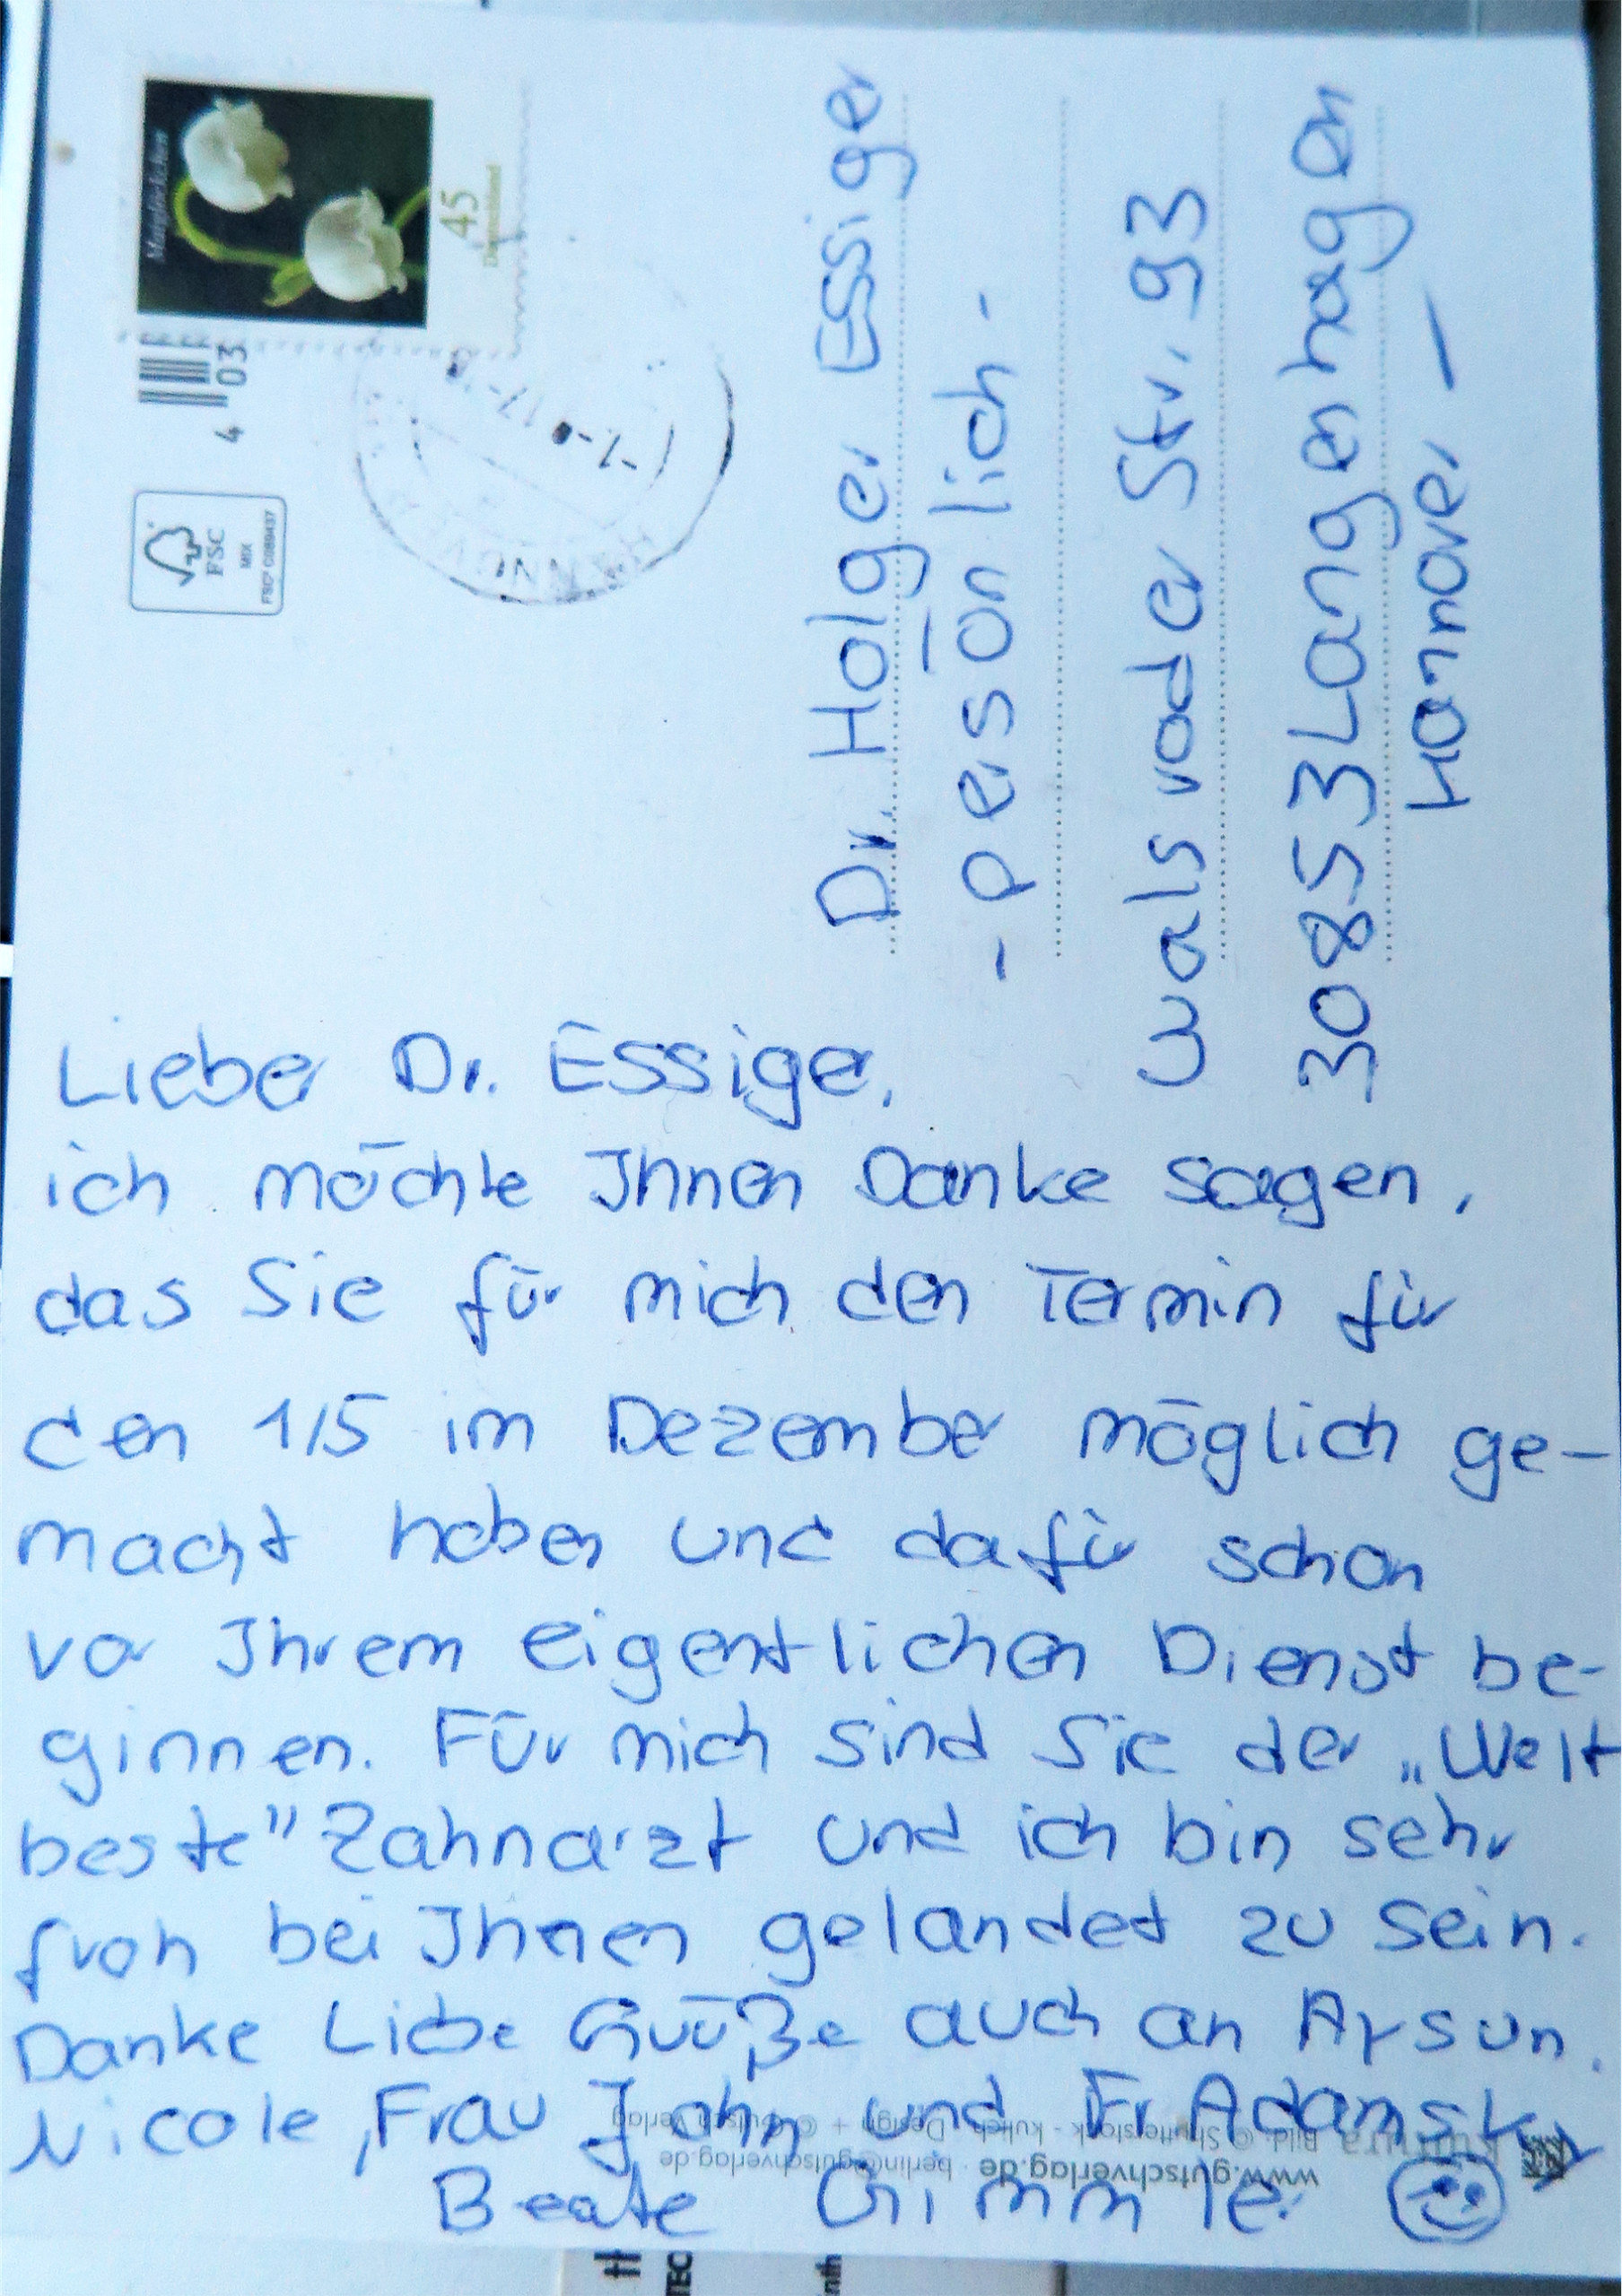 Maiglöckchen
45
Deutschland
4 03
FSC
MIX
Dr. Holger Essiger
- persönlich -
Walsroder Str. 93
30853 Langenhagen
Hannover -
Lieber Dr. Essiger,
ich möchte Ihnen Danke sagen,
das Sie für mich den Termin für
den 1/5 im Dezember möglich ge-
macht haben und dafür schon
vor Ihrem eigentlichen Dienst be-
ginnen. Für mich sind Sie der „Welt
beste" Zahnarzt und ich bin sehr
froh bei Ihnen gelandet zu sein.
Danke Liebe Grüße auch an Aysun,
Nicole, Frau Jahn und Fr Adamsky
Beate Gimmler
www.gutschverlag.de · berlin@gutschverlag.de
Bild: © Shutterstock - kulich · Design + © Gutsch Verlag
TEC